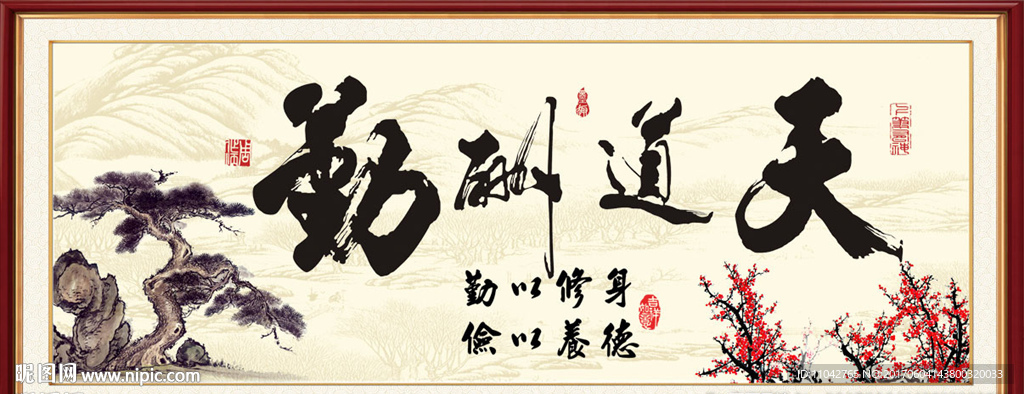 天道酬勤
勤以修身
儉以養德
昵图网 www.nipic.com
ID:11042765 NO:20170604143800320033